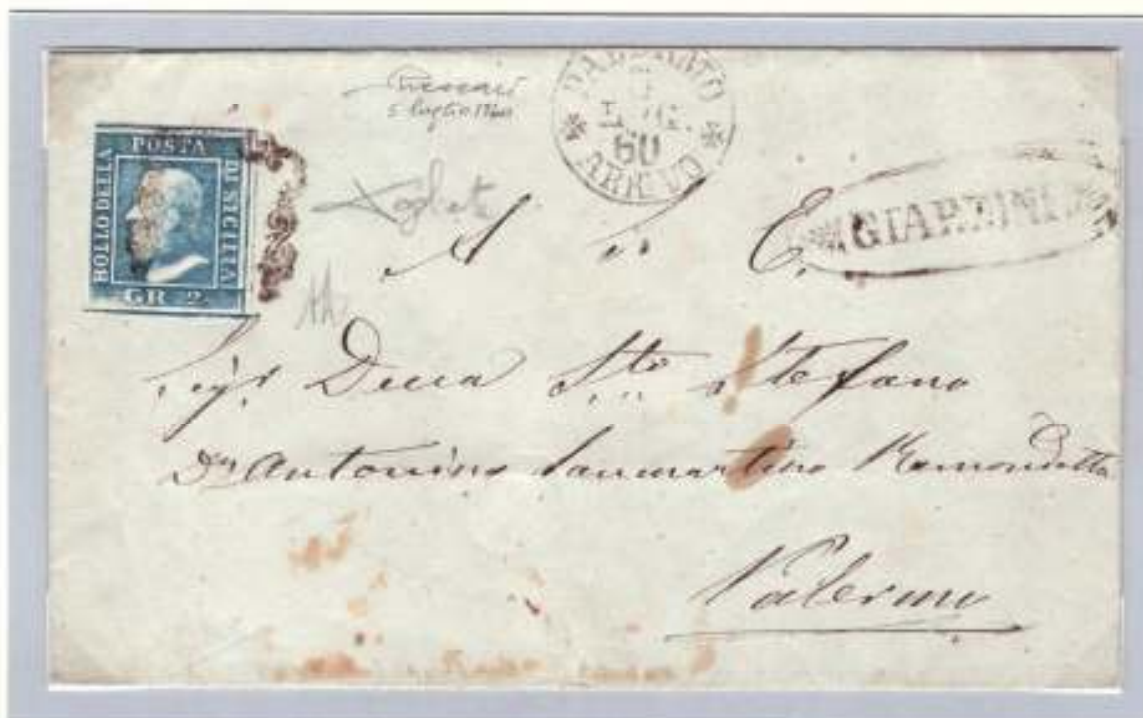 BOLLO DELLA
POSTA
DI SICILIA
GR 2.
5 luglio 1860
LUG.
60
ARRIVO
GIARDINI
A S. E.
Sigr Duca Sto Stefano
Dn Antonino Sanmartino Ramondetta
Palermo